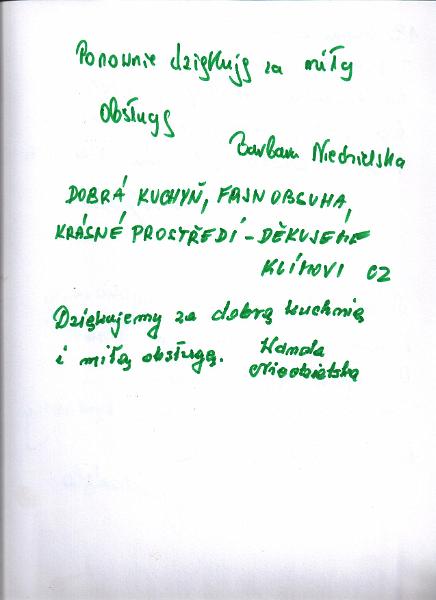 Ponownie dziękuję za miłą
obsługę
Barbara Niedzielska
DOBRÁ KUCHYŇ, FAJN OBSUHA,
KRÁSNÉ PROSTŘEDÍ - DĚKUJEME
KLÍMOVI CZ
Dziękujemy za dobrą kuchnię
i miłą obsługę. Wanda
Niedzielska